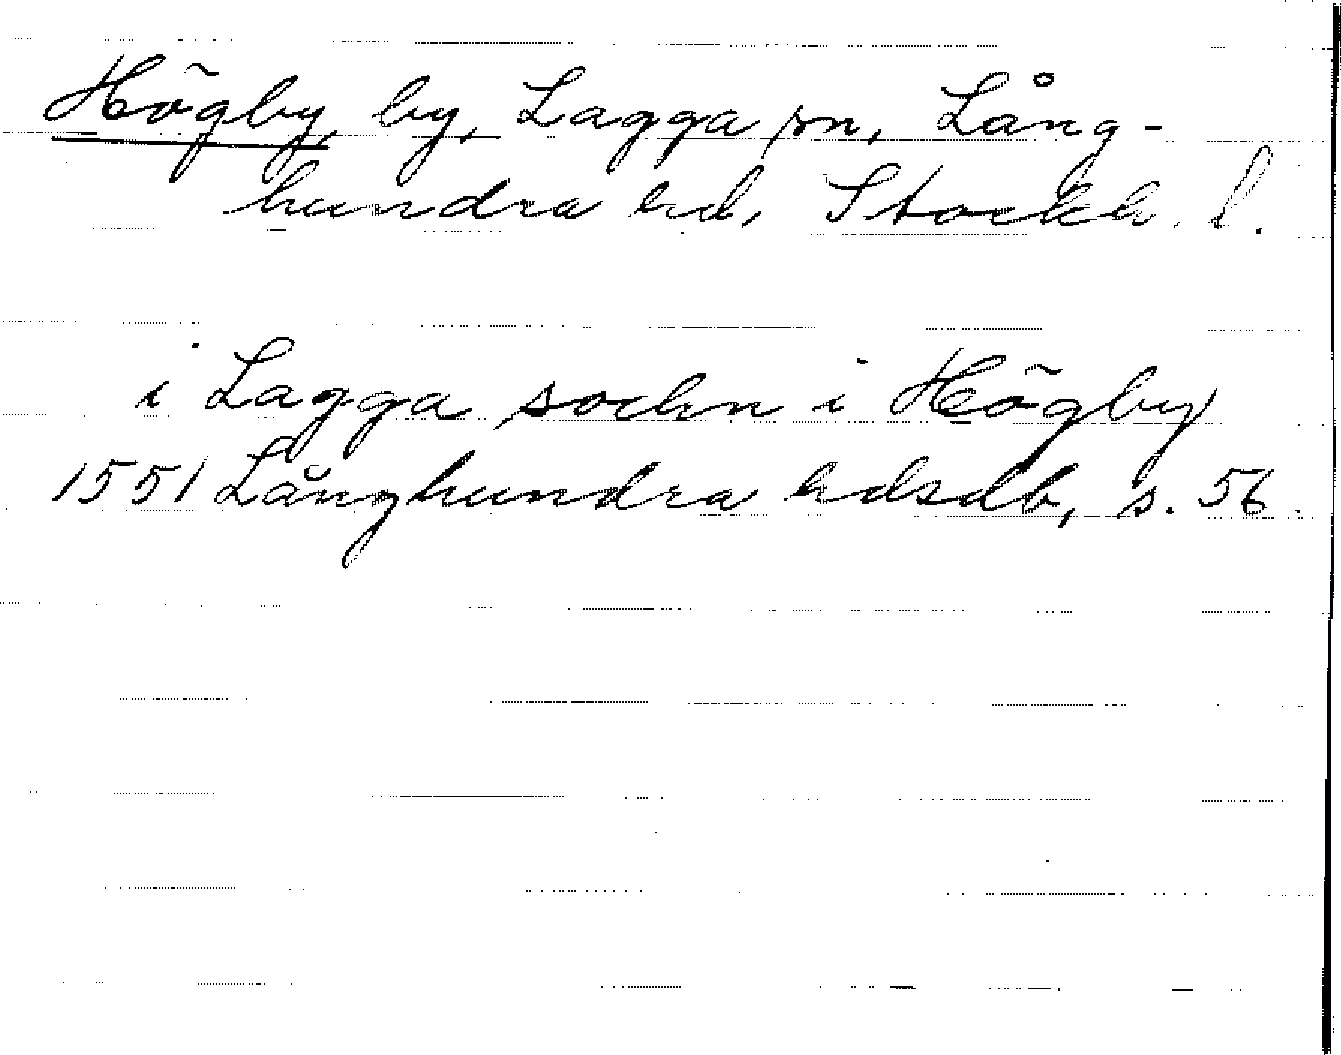 Högby, by, Lagga sn, Lång-
hundra hd, Stockh. l.
i Lagga sochn i Högby
1551 Långhundra hdsdb, s. 56